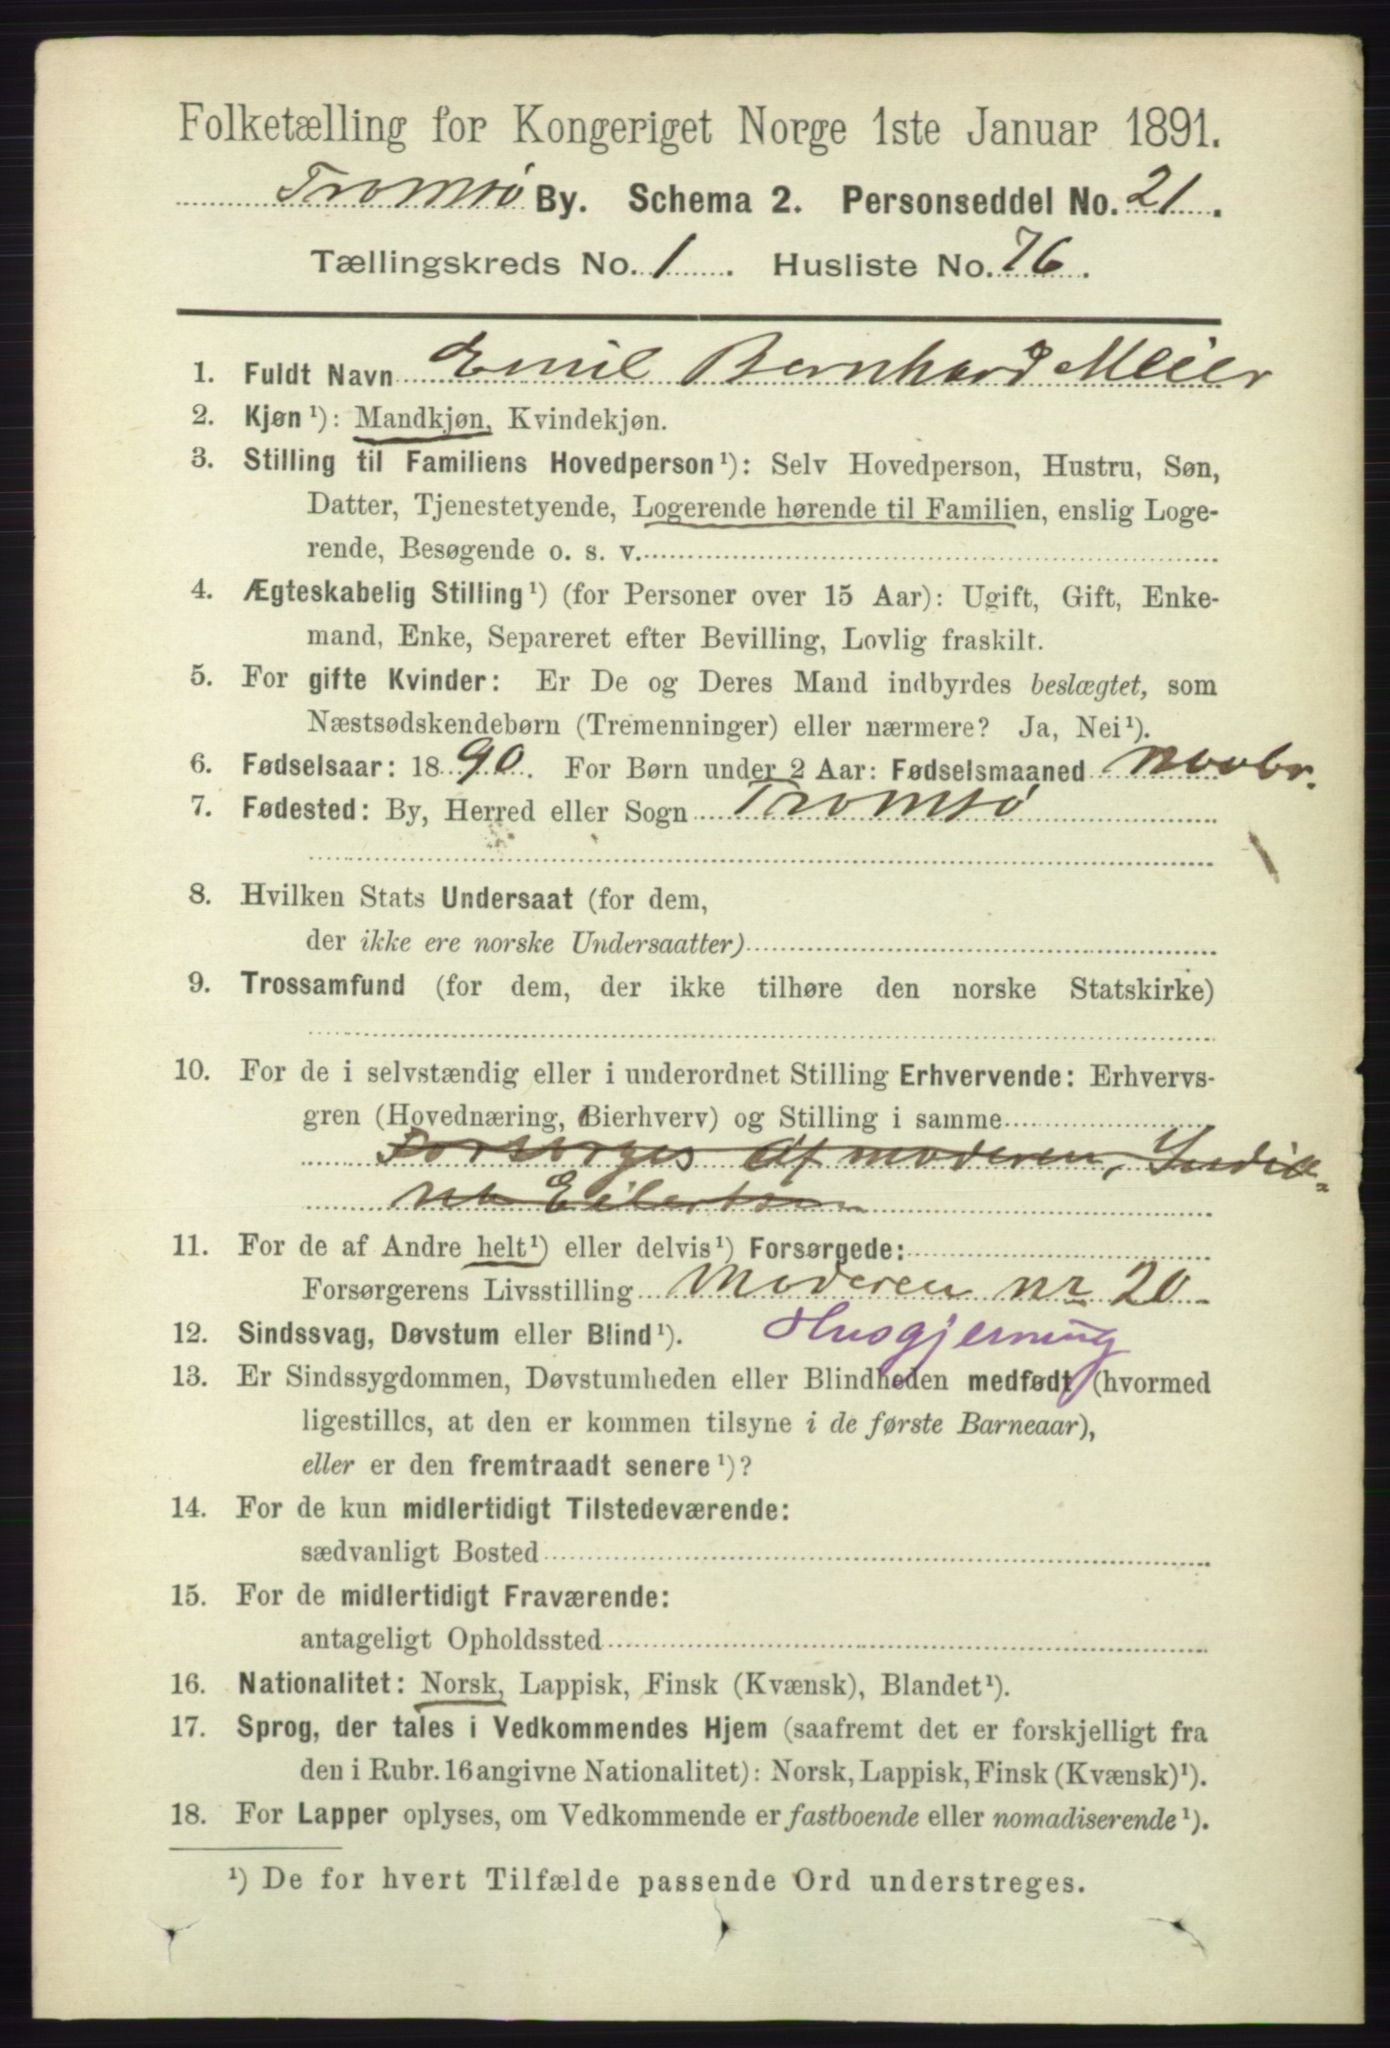 Folketælling for Kongeriget Norge 1ste Januar 1891.
Tromsø By. Schema 2. Personseddel No. 21.
Tællingskreds No. 1. Husliste No. 76.
1. Fuldt Navn Emil Bernhard Meier
2. Kjøn¹): Mandkjøn, Kvindekjøn.
3. Stilling til Familiens Hovedperson¹): Selv Hovedperson, Hustru, Søn,
Datter, Tjenestetyende, Logerende hørende til Familien, enslig Loge-
rende, Besøgende o. s. v.
4. Ægteskabelig Stilling¹) (for Personer over 15 Aar): Ugift, Gift, Enke-
mand, Enke, Separeret efter Bevilling, Lovlig fraskilt.
5. For gifte Kvinder: Er De og Deres Mand indbyrdes beslægtet, som
Næstsødskendebørn (Tremenninger) eller nærmere? Ja, Nei¹).
6. Fødselsaar: 1890. For Børn under 2 Aar: Fødselsmaaned Novbr.
7. Fødested: By, Herred eller Sogn Tromsø
8. Hvilken Stats Undersaat (for dem,
der ikke ere norske Undersaatter)
9. Trossamfund (for dem, der ikke tilhøre den norske Statskirke)
10. For de i selvstændig eller i underordnet Stilling Erhvervende: Erhvervs-
gren (Hovednæring, Bierhverv) og Stilling i samme
Forsørges af moderen,
Eilertsen
11. For de af Andre helt¹) eller delvis¹) Forsørgede:
Forsørgerens Livsstilling Moderen nr 20
12. Sindssvag, Døvstum eller Blind¹). Husgjerning
13. Er Sindssygdommen, Døvstumheden eller Blindheden medfødt (hvormed
ligestilles, at den er kommen tilsyne i de første Barneaar),
eller er den fremtraadt senere¹)?
14. For de kun midlertidigt Tilstedeværende:
sædvanligt Bosted
15. For de midlertidigt Fraværende:
antageligt Opholdssted
16. Nationalitet: Norsk, Lappisk, Finsk (Kvænsk), Blandet¹).
17. Sprog, der tales i Vedkommendes Hjem (saafremt det er forskjelligt fra
den i Rubr. 16 angivne Nationalitet): Norsk, Lappisk, Finsk (Kvænsk)¹).
18. For Lapper oplyses, om Vedkommende er fastboende eller nomadiserende¹).
¹) De for hvert Tilfælde passende Ord understreges.